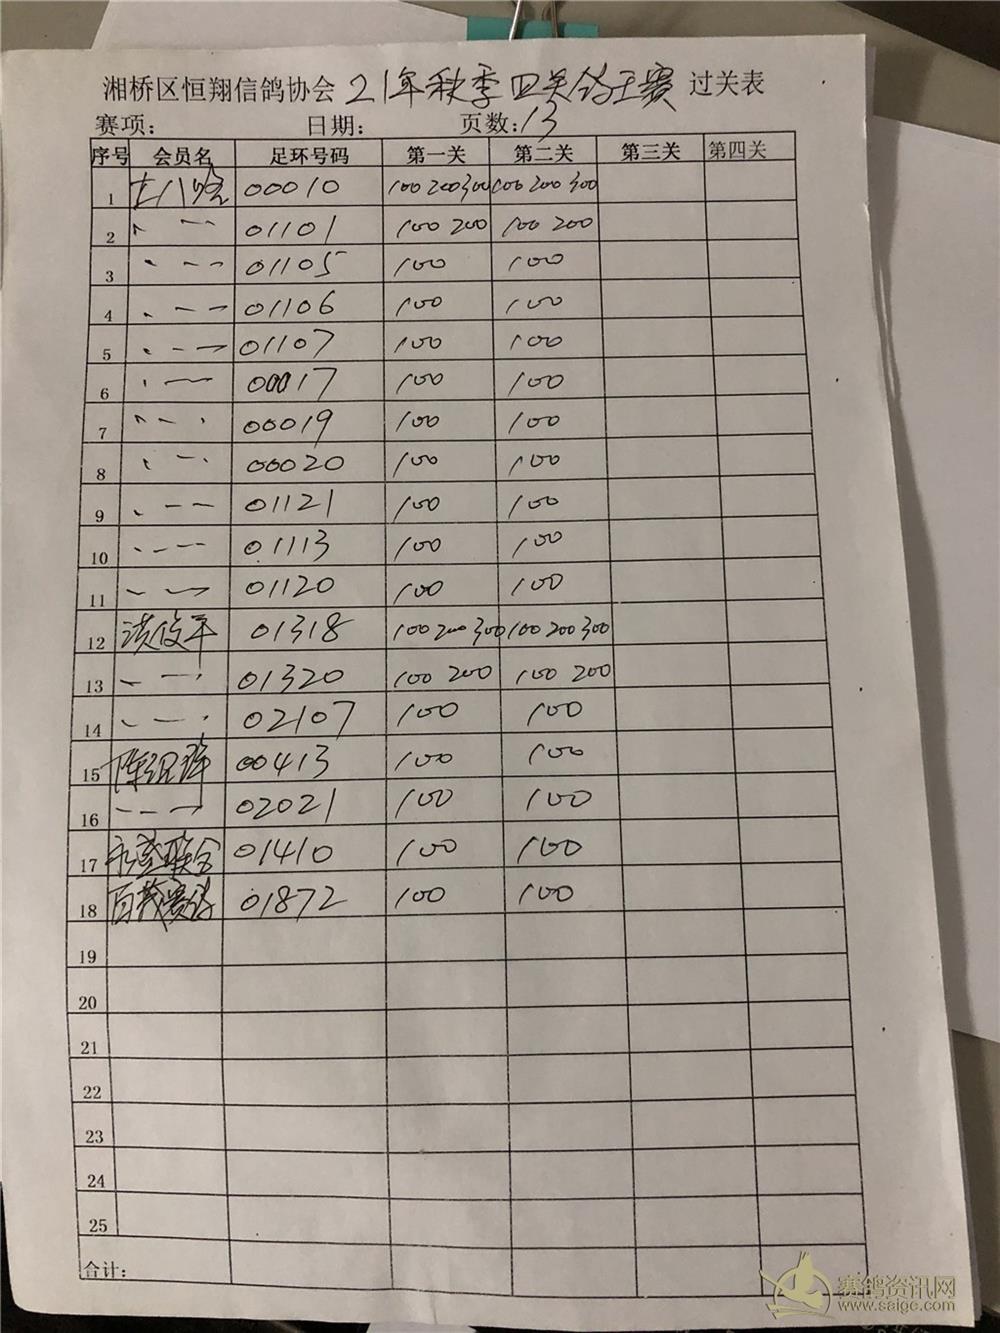 湘桥区恒翔信鸽协会 21年秋季四关鸽王赛 过关表
赛项: 日期: 页数:13
序号 会员名 足环号码 第一关 第二关 第三关 第四关
1 00010 100 200 300 100 200 300
2 、 一 一 01101 100 200 100 200
3 、 一 一 01105 100 100
4 、 一 一 01106 100 100
5 、 一 一 01107 100 100
6 、 一 一 00017 100 100
7 、 一 、 00019 100 100
8 、 一 、 00020 100 100
9 、 一 一 01121 100 100
10 、 一 一 01113 100 100
11 、 一 一 01120 100 100
12 洪俊平 01318 100 200 300 100 200 300
13 、 一 、 01320 100 200 100 200
14 、 一 、 02107 100 100
15 陈 00413 100 100
16 、 一 一 02021 100 100
17 联合 01410 100 100
18 百茂赛鸽 01872 100 100
19
20
21
22
23
24
25
合计:
赛鸽资讯网
www.saige.com